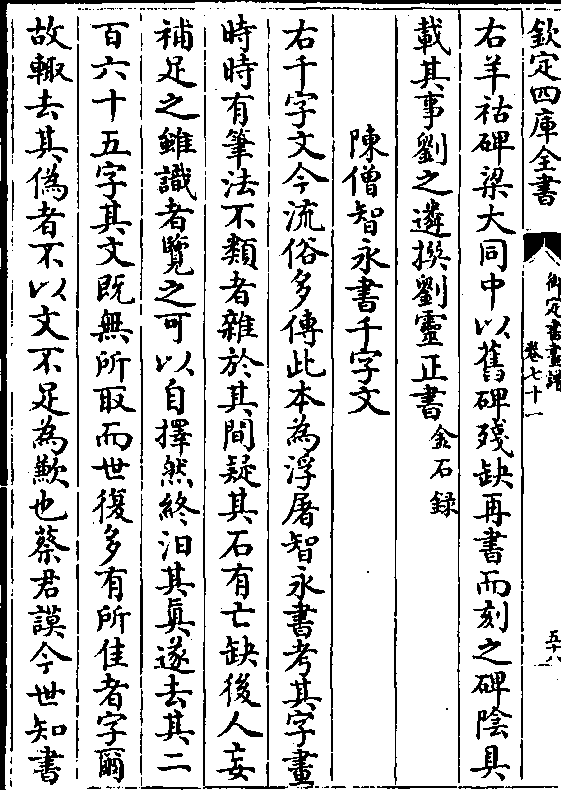 欽定四庫全書
御定書畫譜
卷七十一
五十八
右羊祜碑梁大同中以舊碑殘缺再書而刻之碑陰具
載其事劉之遴撰劉靈正書金石録
陳僧智永書千字文
右千字文今流俗多傳此本為浮屠智永書考其字畫
時時有筆法不類者雜於其間疑其石有亡缺後人妄
補足之雖識者覽之可以自擇然終汩其真遂去其二
百六十五字其文既無所取而世復多有所佳者字爾
故輒去其偽者不以文不足為歉也蔡君謨今世知書